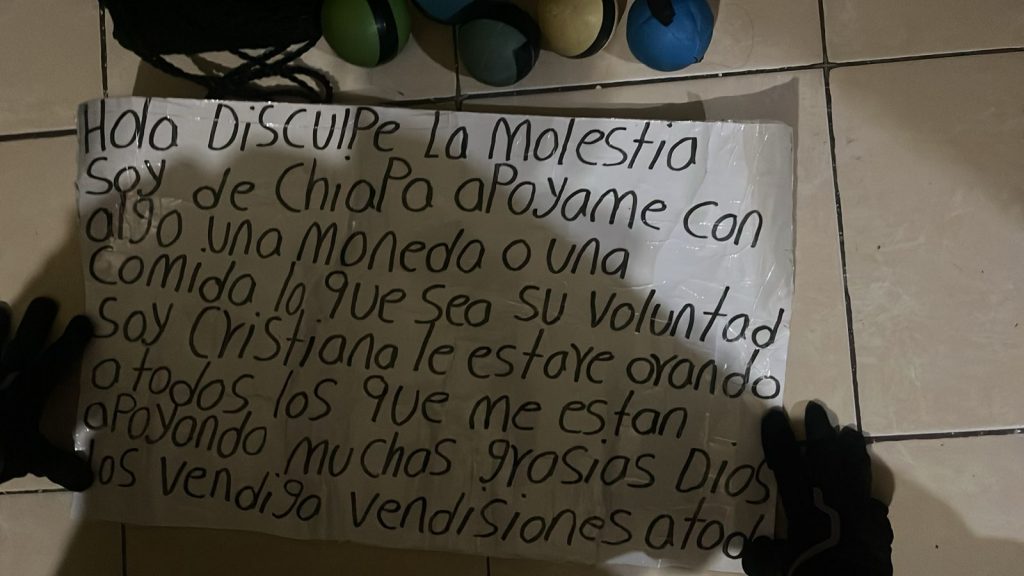 Hola DiSCUlPe La Molestia
Soy de ChiaPa aPoyame con
algo una moneda o una
comida lo que sea su voluntad
Soy Cristiana le estare orando
a todos los que me estan
aPoyando muchas grasias Dios
los vendiga vendisiones a tod